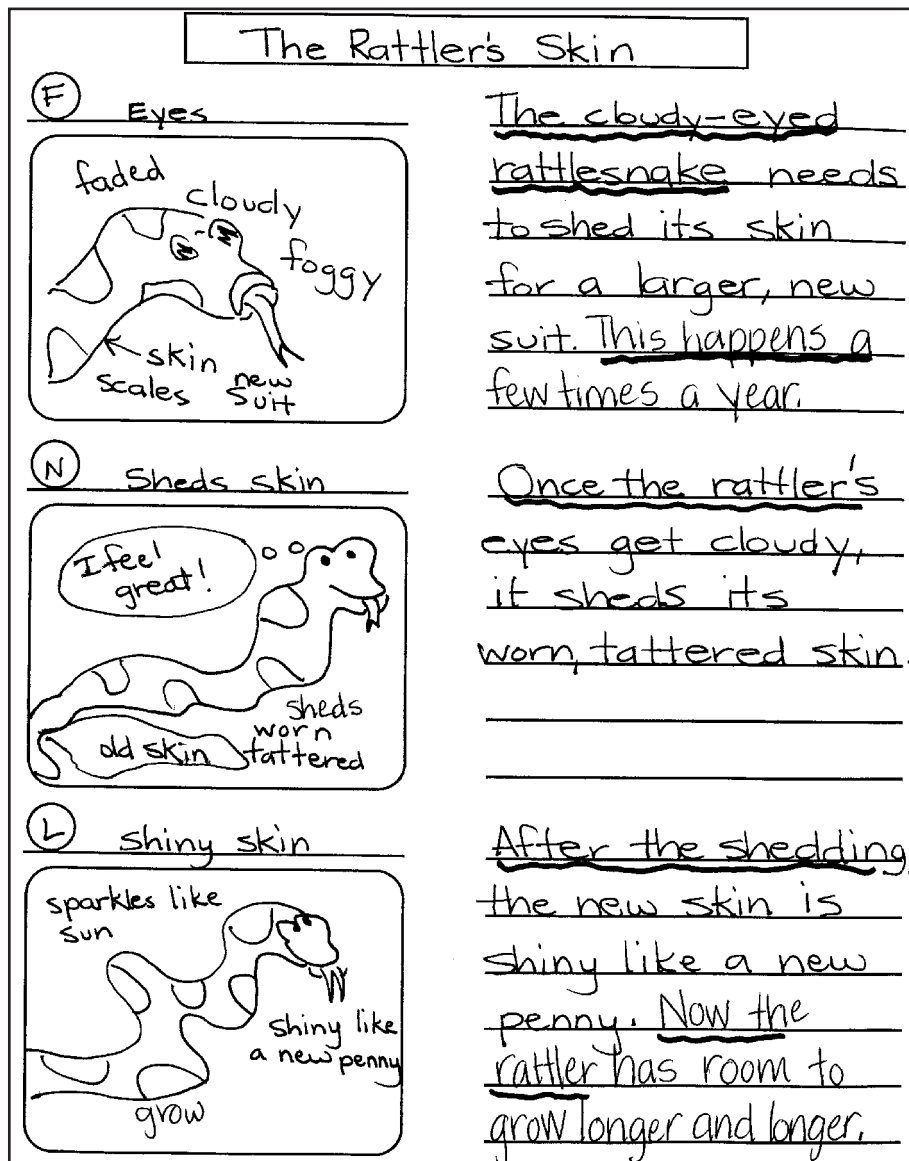 The Rattler's Skin
F Eyes
faded
cloudy
foggy
skin
scales
new
suit
The cloudy-eyed
rattlesnake needs
to shed its skin
for a larger, new
suit. This happens a
few times a year.
N Sheds skin
I feel
great!
sheds
worn
tattered
old skin
Once the rattler's
eyes get cloudy,
it sheds its
worn, tattered skin.
L Shiny skin
sparkles like
sun
shiny like
a new penny
grow
After the shedding,
the new skin is
shiny like a new
penny. Now the
rattler has room to
grow longer and longer.